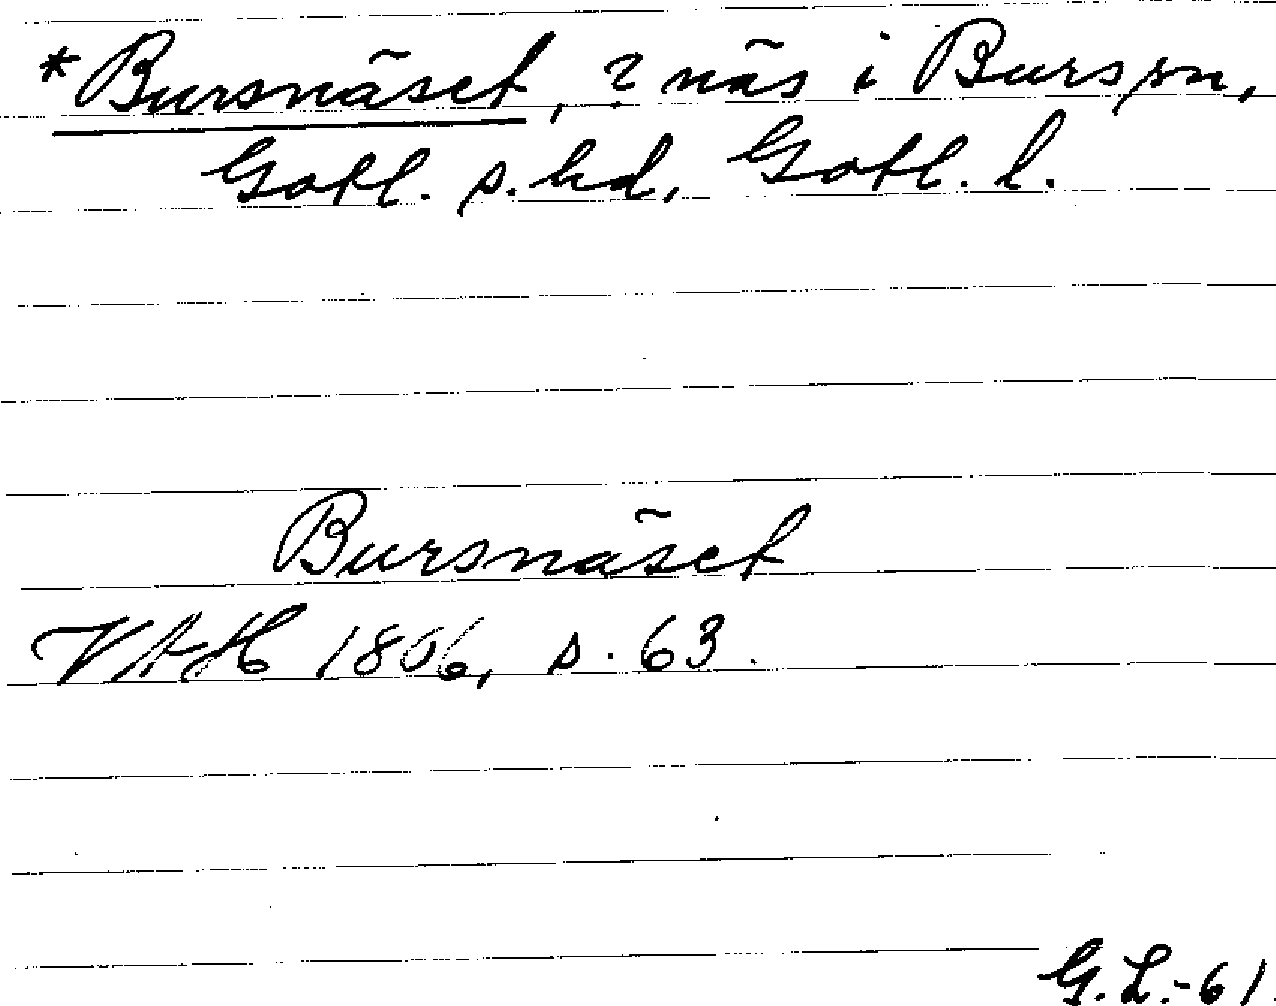 *Bursnäset, ? näs i Burs sn,
Gotl. s. hd, Gotl. l.
Bursnäset
VAH 1806, s. 63.
G. L. -61